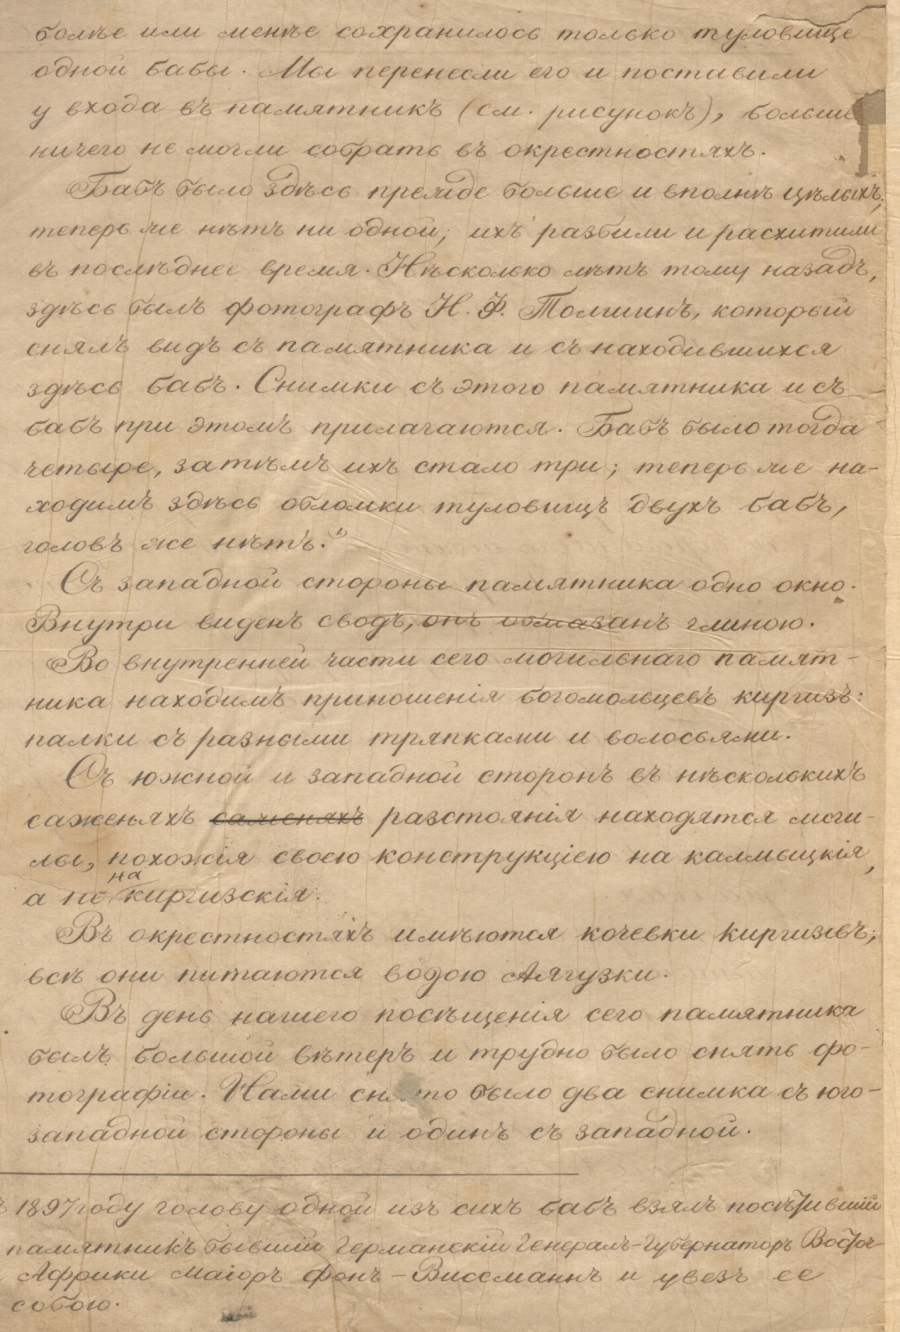 болѣе или менѣе сохранилось только туловище
одной бабы. Мы перенесли его и поставили
у входа въ памятникъ (см. рисунокъ), больше
ничего не могли собрать въ окрестностяхъ.
Бабъ было здѣсь прежде больше и вполнѣ цѣлыхъ,
теперь же нѣтъ ни одной; ихъ разбили и расхитили
въ послѣднее время. Нѣсколько лѣтъ тому назадъ,
здѣсь былъ фотографъ Н. Ф. Толшинъ, который
снялъ видъ съ памятника и съ находившихся
здѣсь бабъ. Снимки съ этого памятника и съ
бабъ при этомъ прилагаются. Бабъ было тогда
четыре, затѣмъ ихъ стало три; теперь же на-
ходимъ здѣсь обломки туловищъ двухъ бабъ,
головъ же нѣтъ.¹⁾
Съ западной стороны памятника одно окно.
Внутри виденъ сводъ, онъ обмазанъ глиною.
Во внутренней части сего могильнаго памят-
ника находимъ приношенія богомольцевъ киргизъ:
палки съ разными тряпками и волосьями.
Съ южной и западной сторонъ въ нѣсколькихъ
саженяхъ саженяхъ разстоянія находятся моги-
лы, похожія своею конструкціею на калмыцкія,
а не на киргизскія.
Въ окрестностяхъ имѣются кочевки киргизовъ;
всѣ они питаются водою Аягузки.
Въ день нашего посѣщенія сего памятника
былъ большой вѣтеръ и трудно было снять фо-
тографіи. Нами снято было два снимка съ юго-
западной стороны и одинъ съ западной.
1897 году голову одной изъ сихъ бабъ взялъ посѣтившій
памятникъ бывшій Германскій Генералъ-Губернаторъ Восточ-
Африки Маіоръ фонъ-Виссманнъ и увезъ ее
собою.